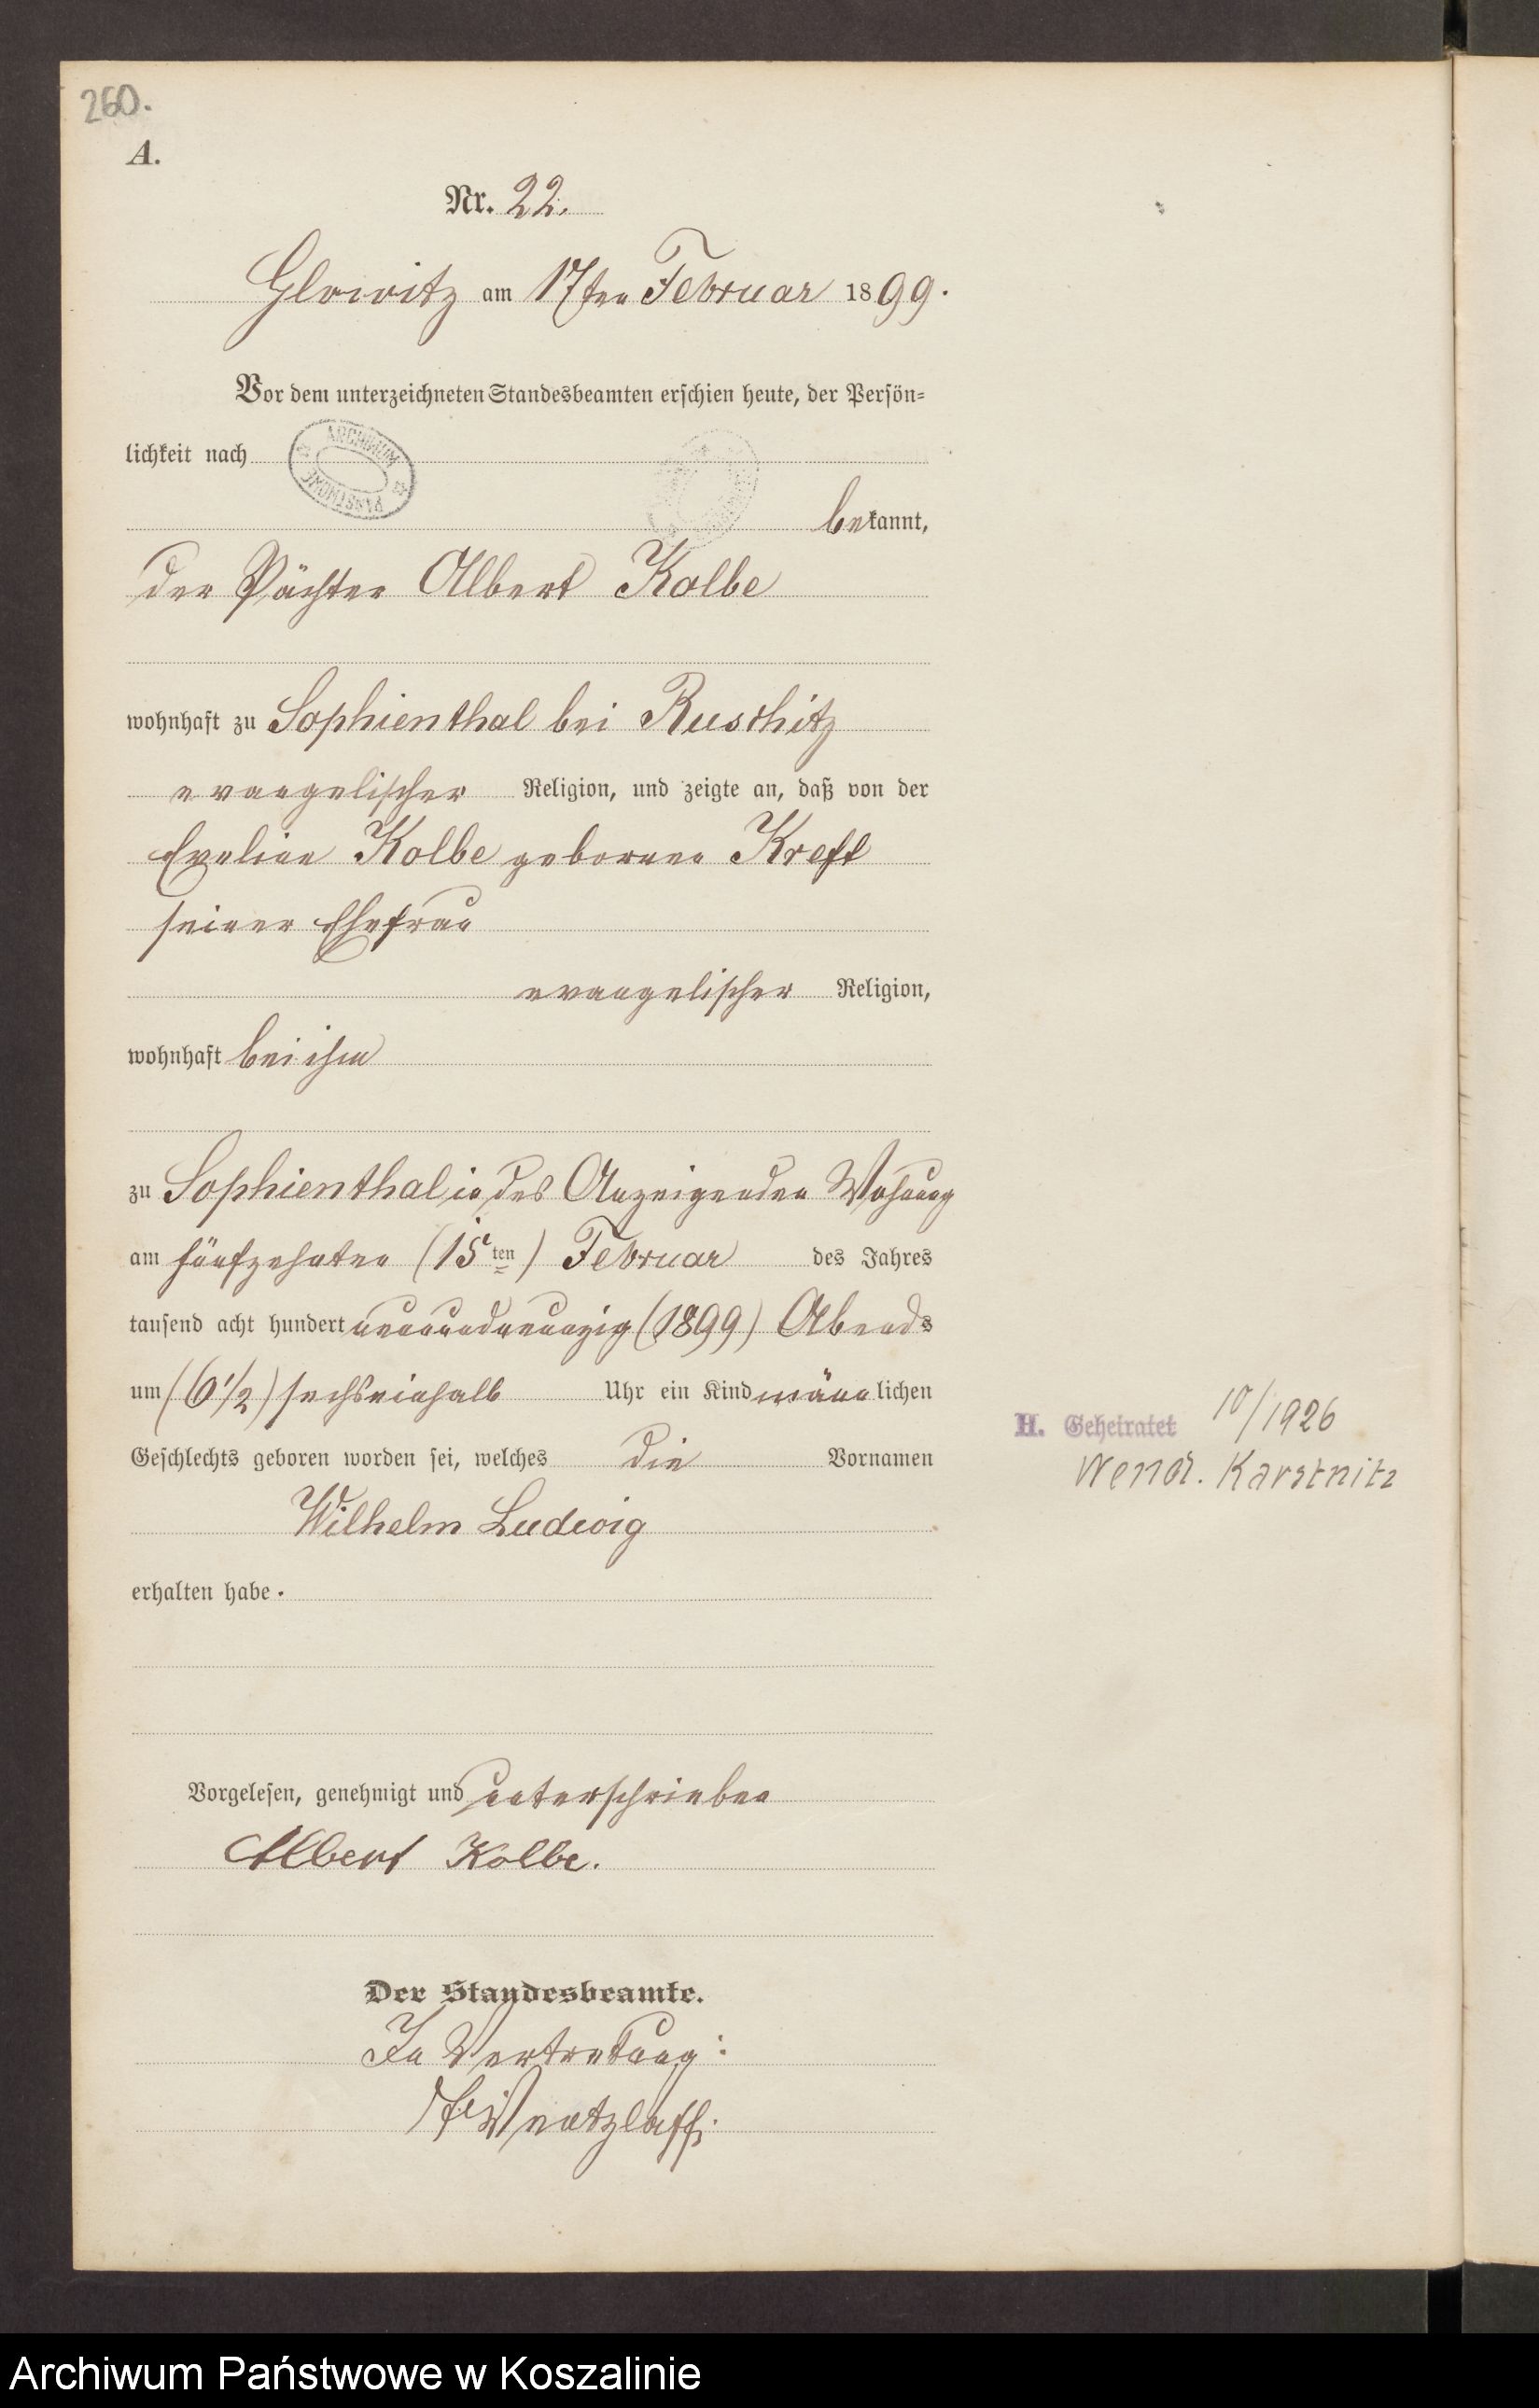 260.
A.
Nr. 22.
Glowitz am 17ten Februar 1899.
Vor dem unterzeichneten Standesbeamten erschien heute, der Persön-
lichkeit nach
ARCHIWUM PAŃSTWOWE
bekannt,
der Pächter Albert Kolbe
wohnhaft zu Sophienthal bei Ruschitz
evangelischer Religion, und zeigte an, daß von der
Eveline Kolbe geborene Kreft
seiner Ehefrau
evangelischer Religion,
wohnhaft bei ihm
zu Sophienthal in des Anzeigenden Wohnung
am fünfzehnten (15ten) Februar des Jahres
tausend acht hundert neunundneunzig (1899) Abends
um (6 1/2) sechseinhalb Uhr ein Kind männlichen
Geschlechts geboren worden sei, welches die Vornamen
Wilhelm Ludwig
erhalten habe.
H. Geheiratet 10/1926
Wend. Karstnitz
Vorgelesen, genehmigt und unterschrieben
Albert Kolbe.
Der Standesbeamte.
In Vertretung:
Wentzlaff.
Archiwum Państwowe w Koszalinie